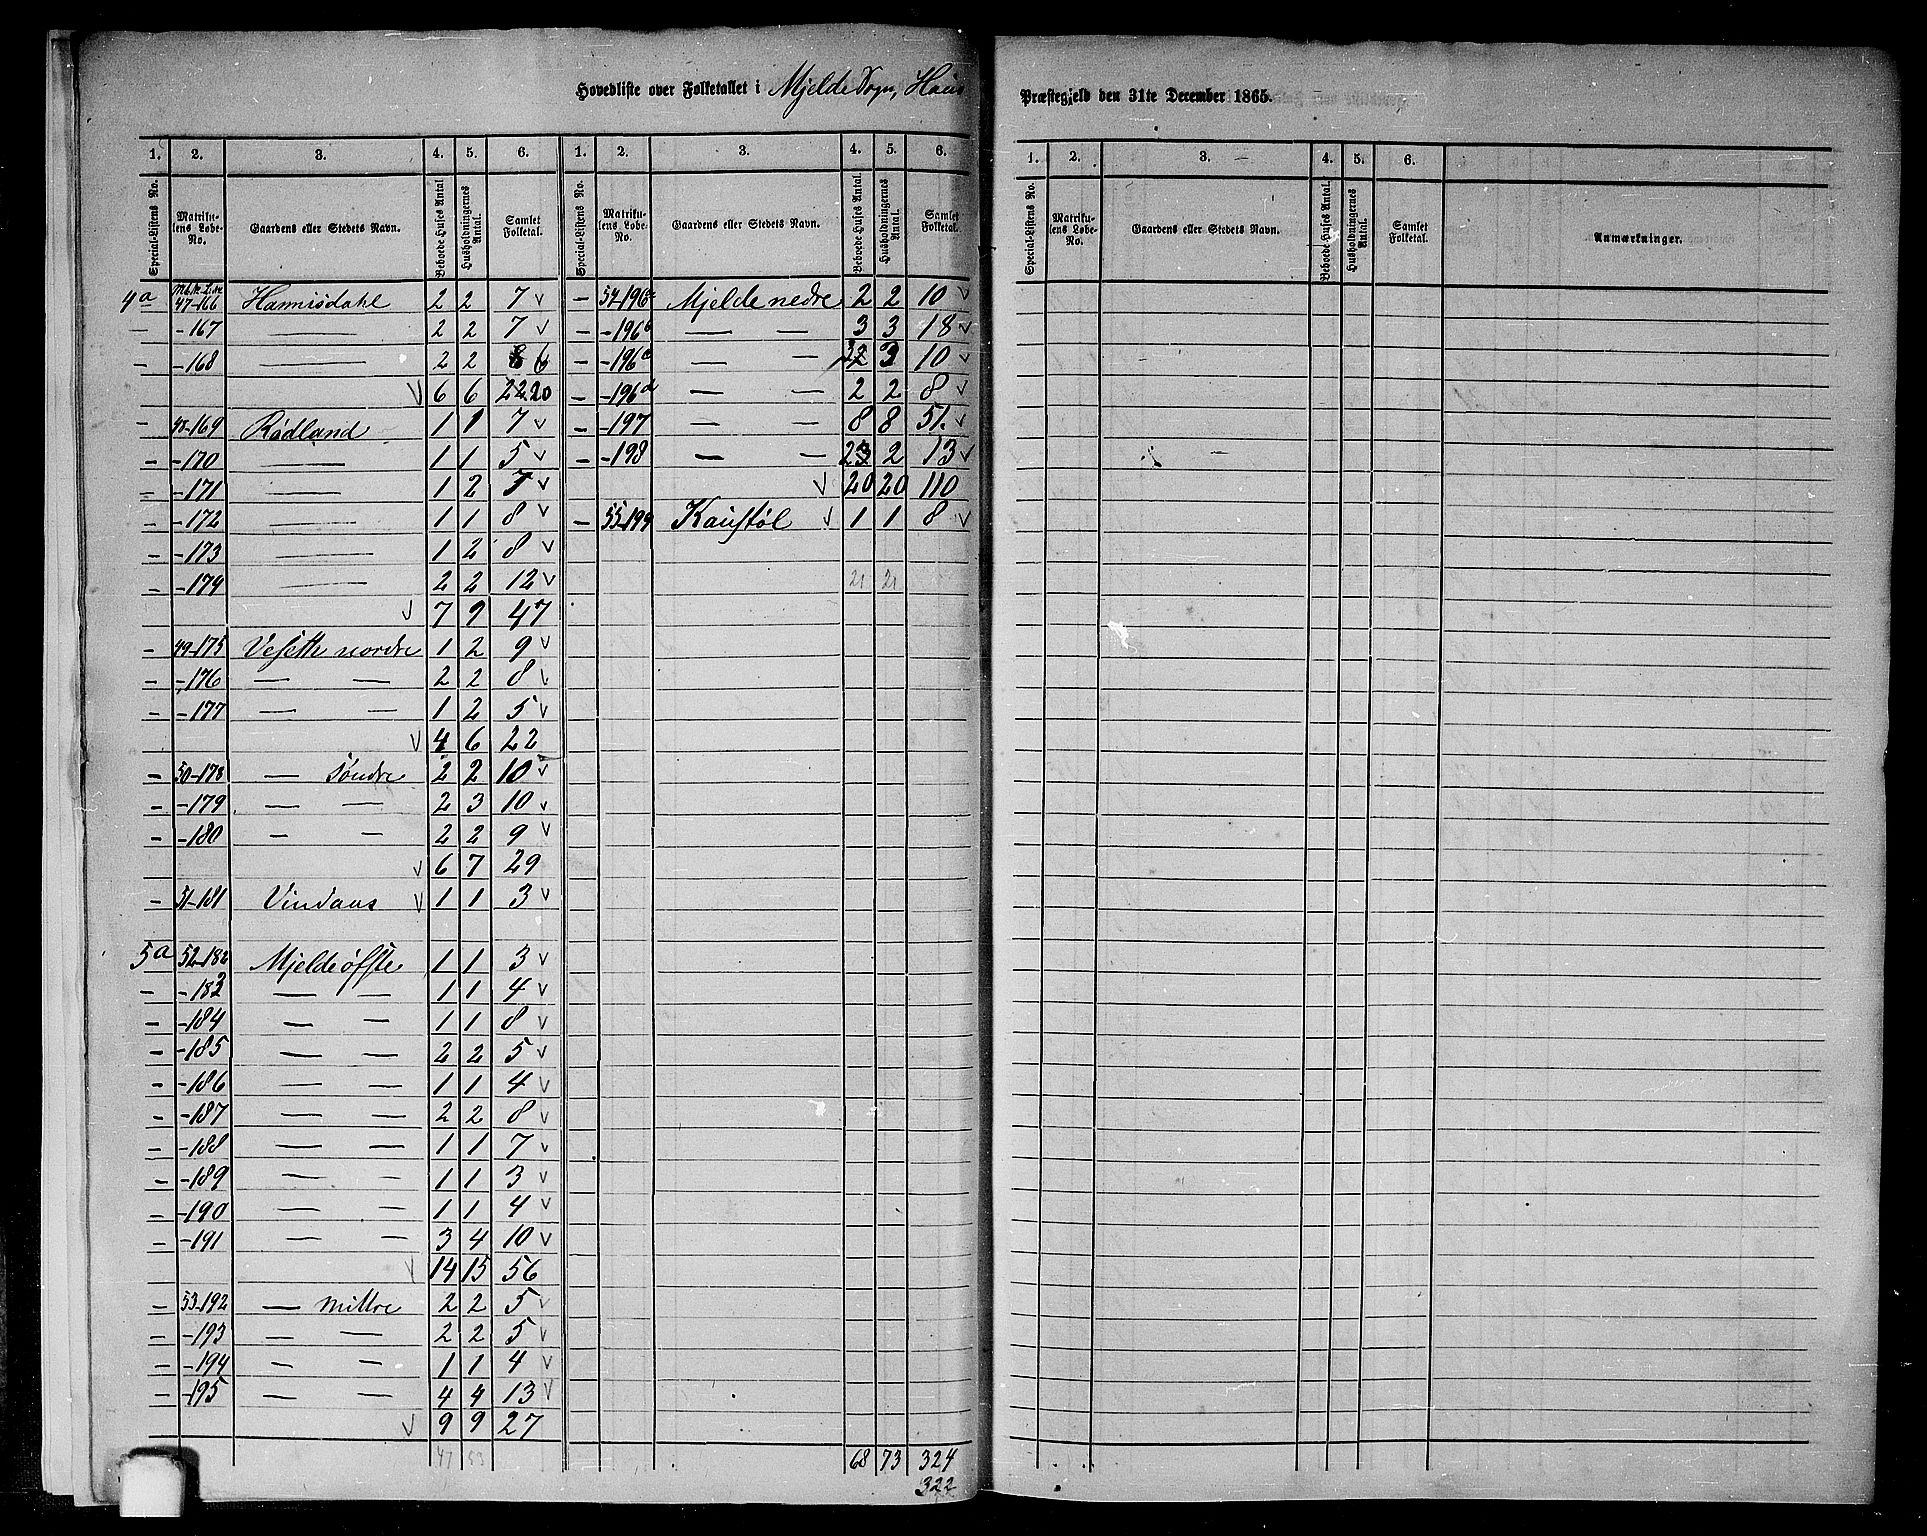 Hovedliste over Folketallet i Mjelde Sogn, Haus Præstegjeld den 31te December 1865.
1. 2. 3. 4. 5. 6. 1. 2. 3. 4. 5. 6.
Special-Listens No. Matrikulens Lobe-No. Gaardens eller Stedets Navn. Beboede Huses Antal. Husholdningernes Antal. Samlet Folketal. Special-Listens No. Matrikulens Lobe-No. Gaardens eller Stedets Navn. Beboede Huses Antal. Husholdningernes Antal. Samlet Folketal.
4a 47-166 Hannisdahl 2 2 7 v
— -167 — 2 2 7 v
— -168 — 2 2 6
v 6 6 22 20
— 48-169 Rødland 1 1 7 v
— -170 — 1 1 5 v
— -171 — 1 2 7 v
— -172 — 1 1 8 v
— -173 — 1 2 8 v
— -174 — 2 2 12 v
v 7 9 47
— 49-175 Vesette nordre 1 2 9 v
— -176 — — 2 2 8 v
— -177 — — 1 2 5 v
v 4 6 22
— 50-178 — søndre 2 2 10 v
— -179 — — 2 3 10 v
— -180 — — 2 2 9 v
v 6 7 29
— 51-181 Vindaus v 1 1 3 v
5a 52-182 Mjelde øfste 1 1 3 v
— -183 — — 1 1 4 v
— -184 — — 1 1 8 v
— -185 — — 2 2 5 v
— -186 — — 1 1 4 v
— -187 — — 2 2 8 v
— -188 — — 1 1 7 v
— -189 — — 1 1 3 v
— -190 — — 1 1 4 v
— -191 — — 3 4 10 v
v 14 15 56
— 53-192 — mittre 2 2 5 v
— -193 — — 2 2 5 v
— -194 — — 1 1 4 v
— -195 — — 4 4 13 v
v 9 9 27
47 53
— 54-196a Mjelde nedre 2 2 10 v
— -196b — — 3 3 18 v
— -196c — — 3 3 10 v
— -196d — — 2 2 8 v
— -197 — — 8 8 51 v
— -198 — — 2 2 13 v
v 20 20 110
— 55-199 Kaustøl v 1 1 8 v
21 21
68 73 324
322
1. 2. 3. 4. 5. 6.
Special-Listens No. Matrikulens Lobe-No. Gaardens eller Stedets Navn. Beboede Huses Antal. Husholdningernes Antal. Samlet Folketal. Anmærkninger.